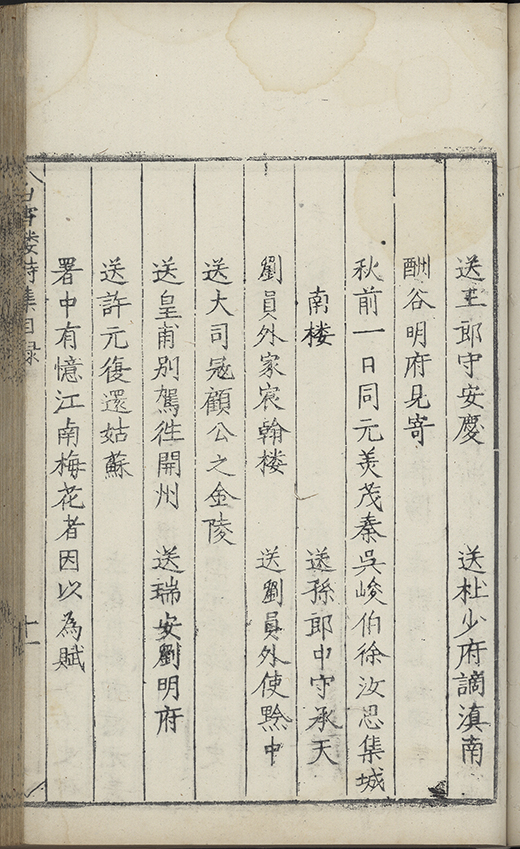 送王郎守安慶　送杜少府謫滇南
酬谷明府見寄
秋前一日同元美茂秦吳峻伯徐汝思集城
南楼　送孫郎中守承天
劉員外家宸翰楼　送劉員外使黔中
送大司冦顧公之金陵
送皇甫別駕徃開州　送瑞安劉明府
送許元復還姑蘇
署中有憶江南梅花者因以為賦
白雪楼詩集目録
十一